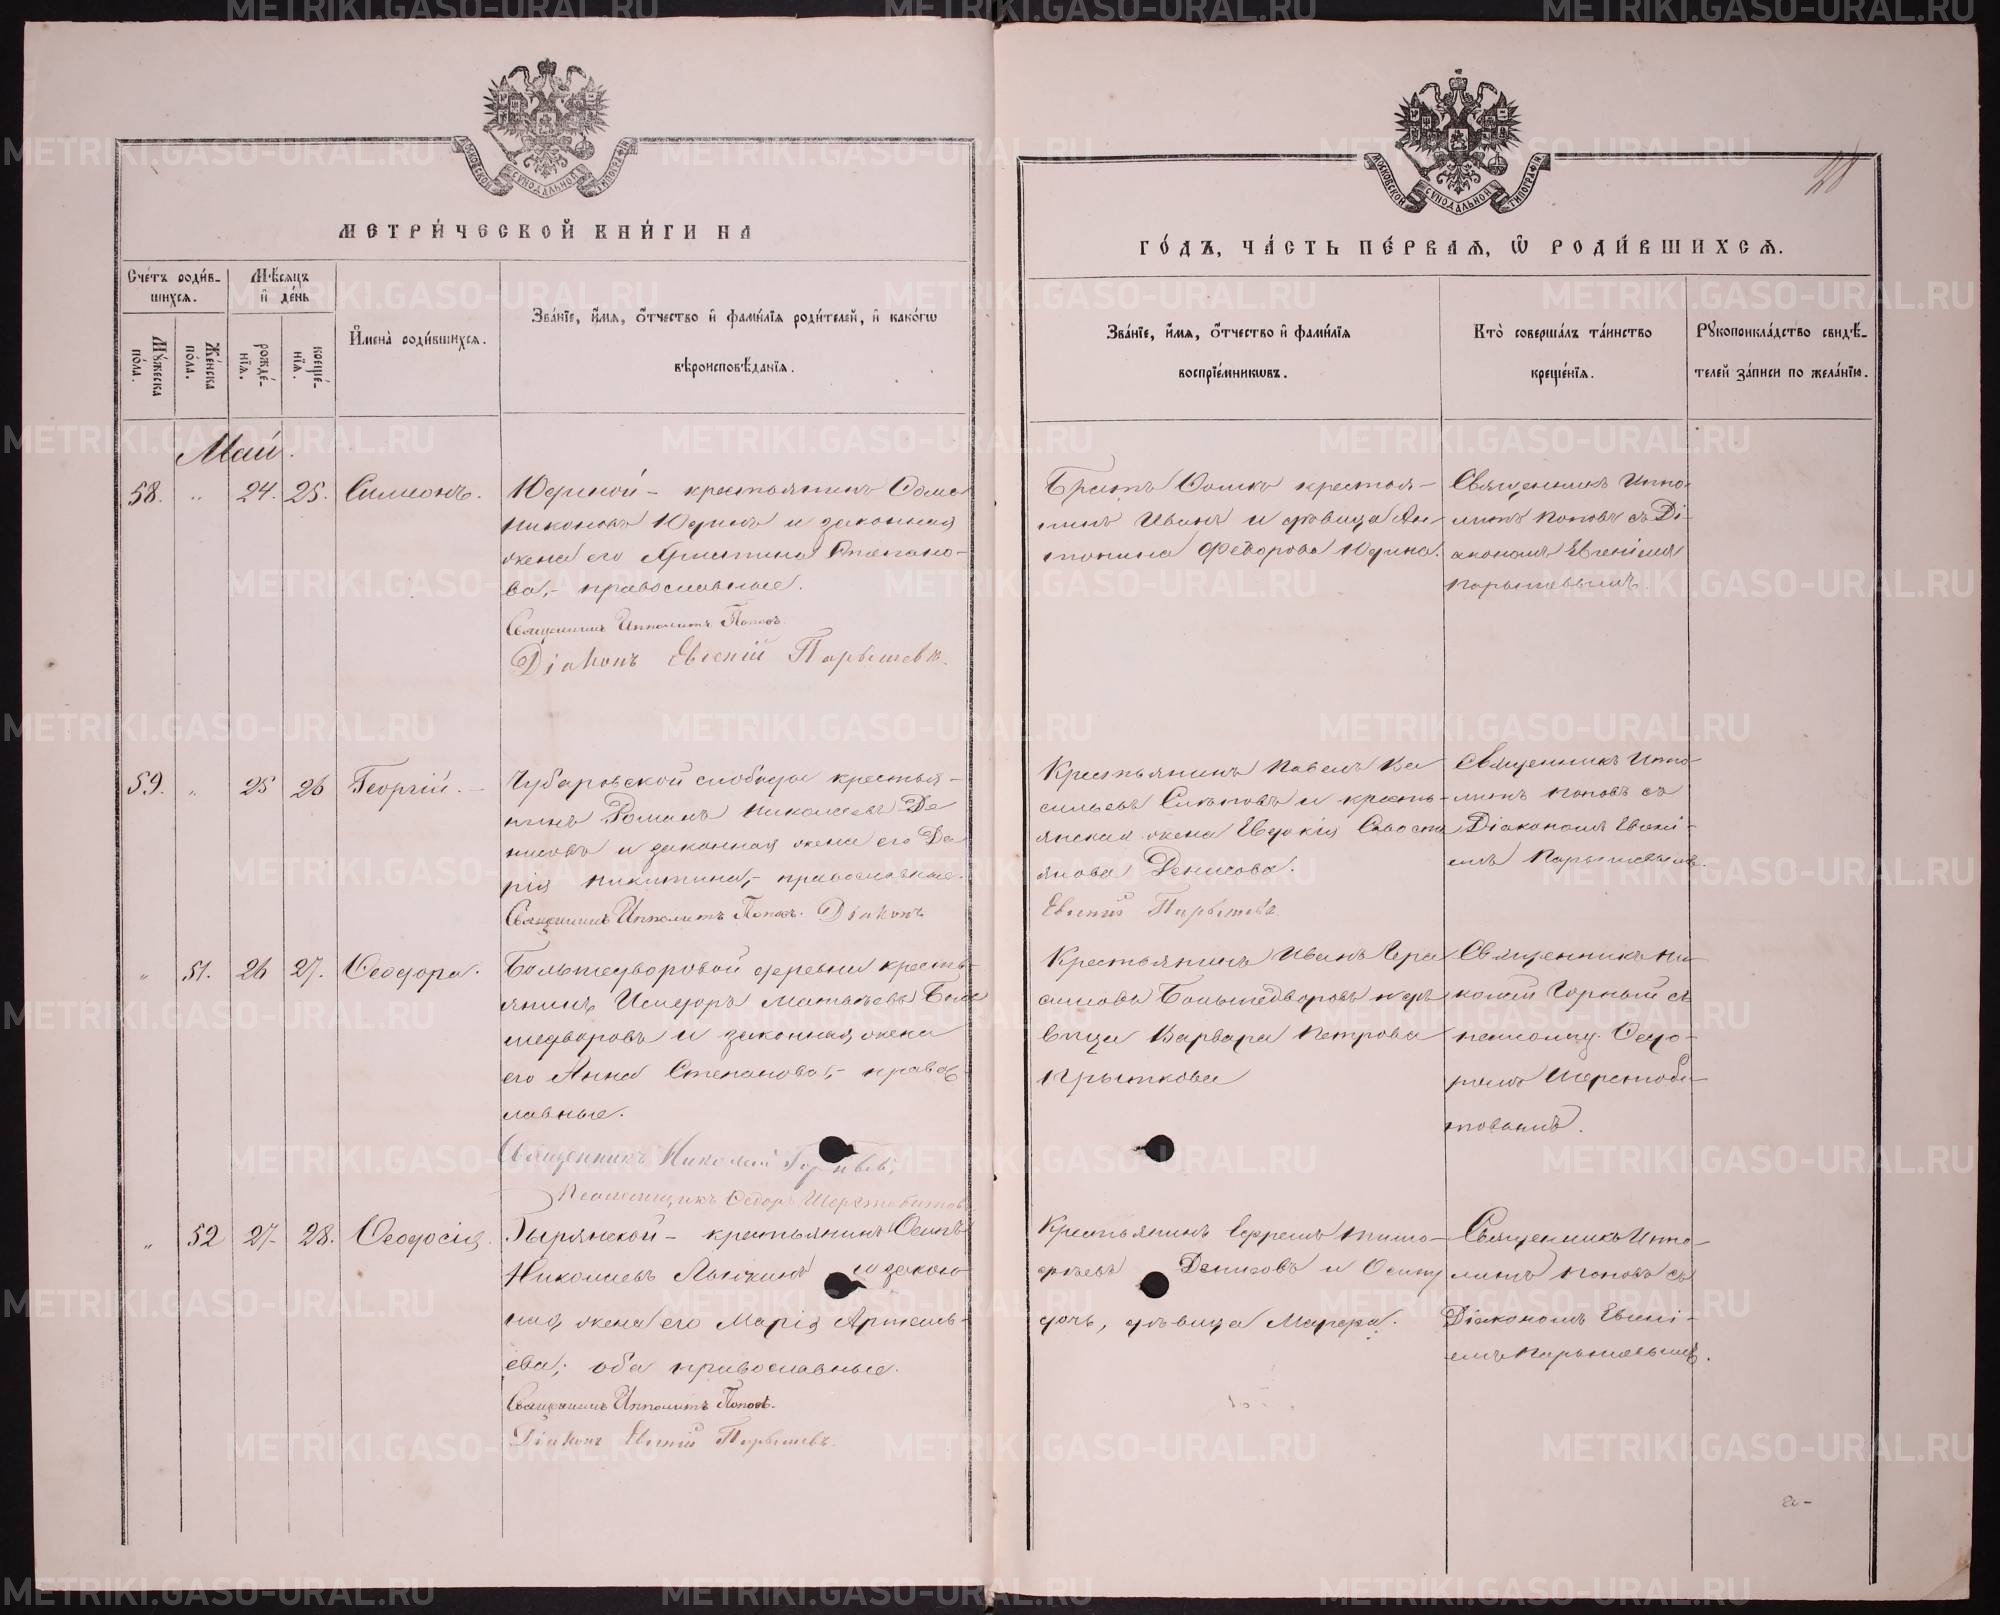 МЕТРИ́ЧЕСКОЙ КНИ́ГИ НА
Сче́тъ роди́в-
шихсѧ.
Мѣ́сѧцъ
и҆ де́нь
И҆мена̀ роди́вшихсѧ.
Зва́нїе, и҆́мѧ, ѻ҆́тчество и҆ фами́лїѧ роди́телей, и҆ како́гѡ
вѣроисповѣ́данїѧ.
Мꙋ́жеска
по́ла.
Же́нска
по́ла.
рожде́-
нїѧ.
креще́-
нїѧ.
Май.
58. " 24. 25. Симеонъ.
Юдиной – крестьянинъ Ѳома
Никоновъ Юдинъ и законная
жена его Христина Степано-
ва, – православные.
Священникъ Ипполитъ Поповъ.
Діаконъ Евгеній Парышевъ.
59. " 25 26 Георгій. –
Чубаровской слободы крестья-
нинъ Романъ Николаевъ Де
нисовъ и законная жена его Да
рія Никитина, – православные.
Священникъ Ипполитъ Поповъ. Діаконъ
" 51. 26 27. Ѳеодора.
Большедворовой деревни кресть-
янинъ Исидоръ Матвѣевъ Боль
шедворовъ и законная жена
его Анна Степанова, – право-
славные.
Священникъ Николай Горныхъ,
Псаломщикъ Ѳедоръ Шерстобитовъ
" 52 27. 28. Ѳеодосія.
– крестьянинъ Осипъ
Николаевъ и закон
ная жена его Марія Артемь-
ева; оба православные.
Священникъ Ипполитъ Поповъ.
Діаконъ Евгеній Парышевъ.
28
ГО́ДЪ, ЧА́СТЬ ПЕ́РВАѦ, Ѡ҆ РОДИ́ВШИХСѦ.
Зва́нїе, и҆́мѧ, ѻ҆́тчество и҆ фами́лїѧ
воспрїе́мникѡвъ.
Кто̀ соверша́лъ та́инство
креще́нїѧ.
Рꙋкоприкла́дство свидѣ́-
телей за́писи по жела́нїю.
Братъ Ѳомы крестья-
нинъ Иванъ и дѣвица Ан-
тонина Ѳедорова Юдина.
Священникъ Иппо-
литъ Поповъ съ Ді-
акономъ Евгеніемъ
Парышевымъ.
Крестьянинъ Павелъ Ва
сильевъ Слѣповъ и кресть-
янская жена Евдокія Савасти
янова Денисова.
Евгеній Парышевъ.
Священникъ Иппо-
литъ Поповъ съ
Діакономъ Евгені-
емъ Парышевымъ.
Крестьянинъ Иванъ Гера
симовъ Большедворовъ и дѣ
вица Варвара Петрова
Крыткова
Священникъ Ни-
колай Горныхъ съ
псаломщ. Ѳедо-
ромъ Шерстоби-
товымъ.
Крестьянинъ Ефремъ Тимо-
фѣевъ Денисовъ и Осипа
дочь, дѣвица Марѳа.
Священникъ Иппо-
литъ Поповъ съ
Діакономъ Евгені-
емъ Парышевымъ.